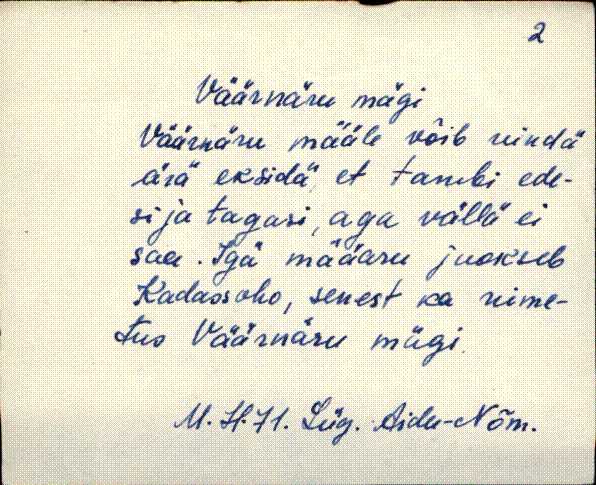 2
Väärnäru mägi
Väärnäru määle võib nindä
ärä eksidä, et tambi ede-
si ja tagasi, aga vällä ei
saa. Igä määaru juokseb
Kadassoho, senest ka nime-
tus Väärnäru mägi.
M. H. 71. Lüg. Aidu-Nõm.